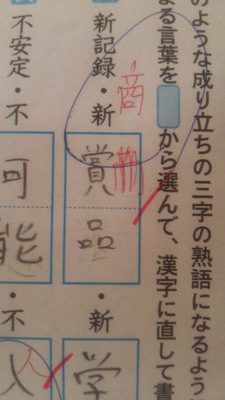 のような成り立ちの三字の熟語になるよう
る言葉を から選んで、漢字に直して書
新記録・新賞品・新学
商
不安定・不可能・不人